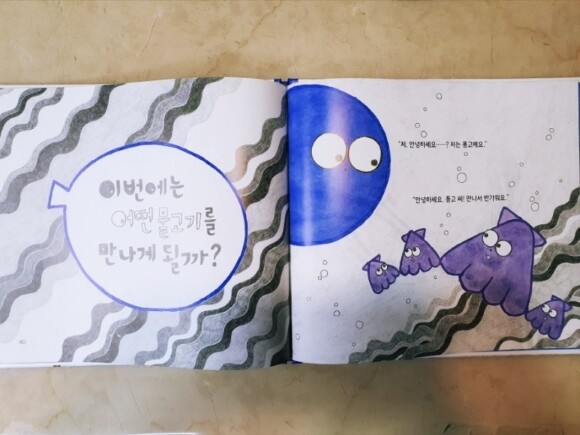 이번에는
어떤 물고기를
만나게 될까?
"저, 안녕하세요……? 저는 퐁고예요."
"안녕하세요, 퐁고 씨! 만나서 반가워요."